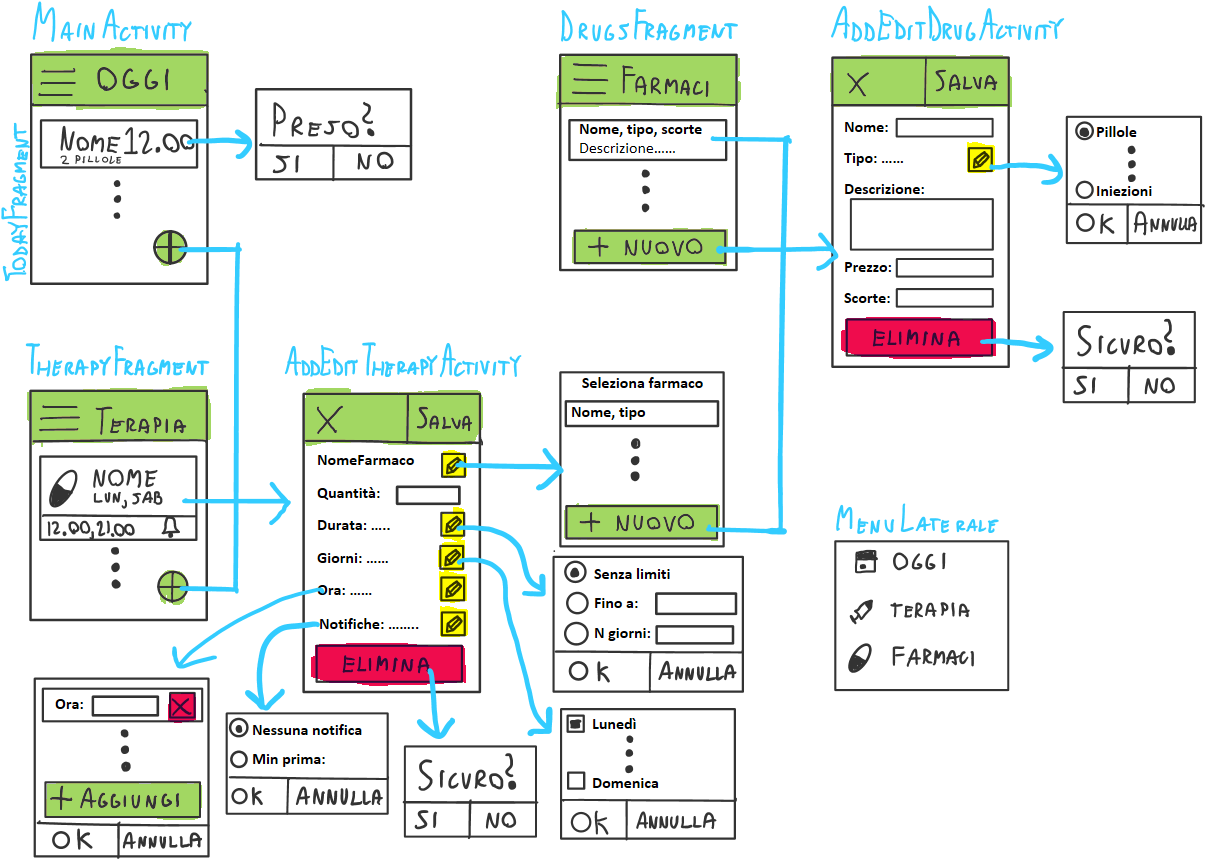 MAINACTIVITY
OGGI
NOME 12.00
2 PILLOLE
TODAYFRAGMENT
PRESO?
SI
NO
DRUGSFRAGMENT
FARMACI
Nome, tipo, scorte
Descrizione......
+ NUOVO
ADDEDITDRUGACTIVITY
X
SALVA
Nome:
Tipo: ......
Descrizione:
Prezzo:
Scorte:
ELIMINA
Pillole
Iniezioni
OK
ANNULLA
SICURO?
SI
NO
THERAPYFRAGMENT
TERAPIA
NOME
LUN, SAB
12.00, 21.00
ADDEDITTHERAPYACTIVITY
X
SALVA
NomeFarmaco
Quantità:
Durata: .....
Giorni: ......
Ora: ......
Notifiche: ........
ELIMINA
Seleziona farmaco
Nome, tipo
+ NUOVO
Senza limiti
Fino a:
N giorni:
OK
ANNULLA
MENULATERALE
OGGI
TERAPIA
FARMACI
Ora:
X
+ AGGIUNGI
OK
ANNULLA
Nessuna notifica
Min prima:
OK
ANNULLA
SICURO?
SI
NO
Lunedì
Domenica
OK
ANNULLA